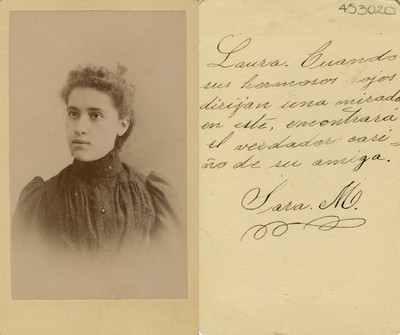 453020
Laura. Cuando
sus hermosos ojos
dirijan una mirada
en este, encontrara
el verdader cari=
ño de su amiga.
Sara. M.